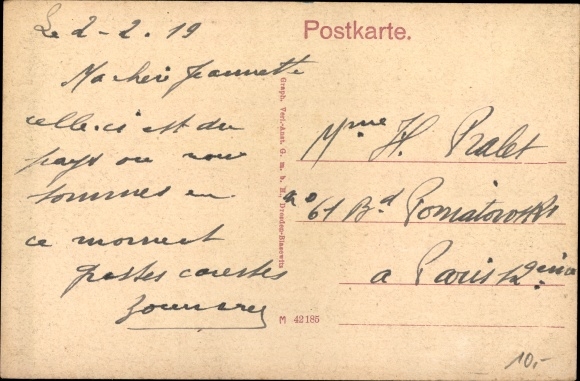 Le 2-2.19
Postkarte.
Ma chère Jeannette
celle-ci est du
pays ou nous
sommes en
ce moment
caresses
Mme H. Pralet
61 Bd Poniatowski
a Paris 12 ème
Graph. Verl.-Anst. G. m. b. H., Dresden-Blasewitz
M 42185
10,-